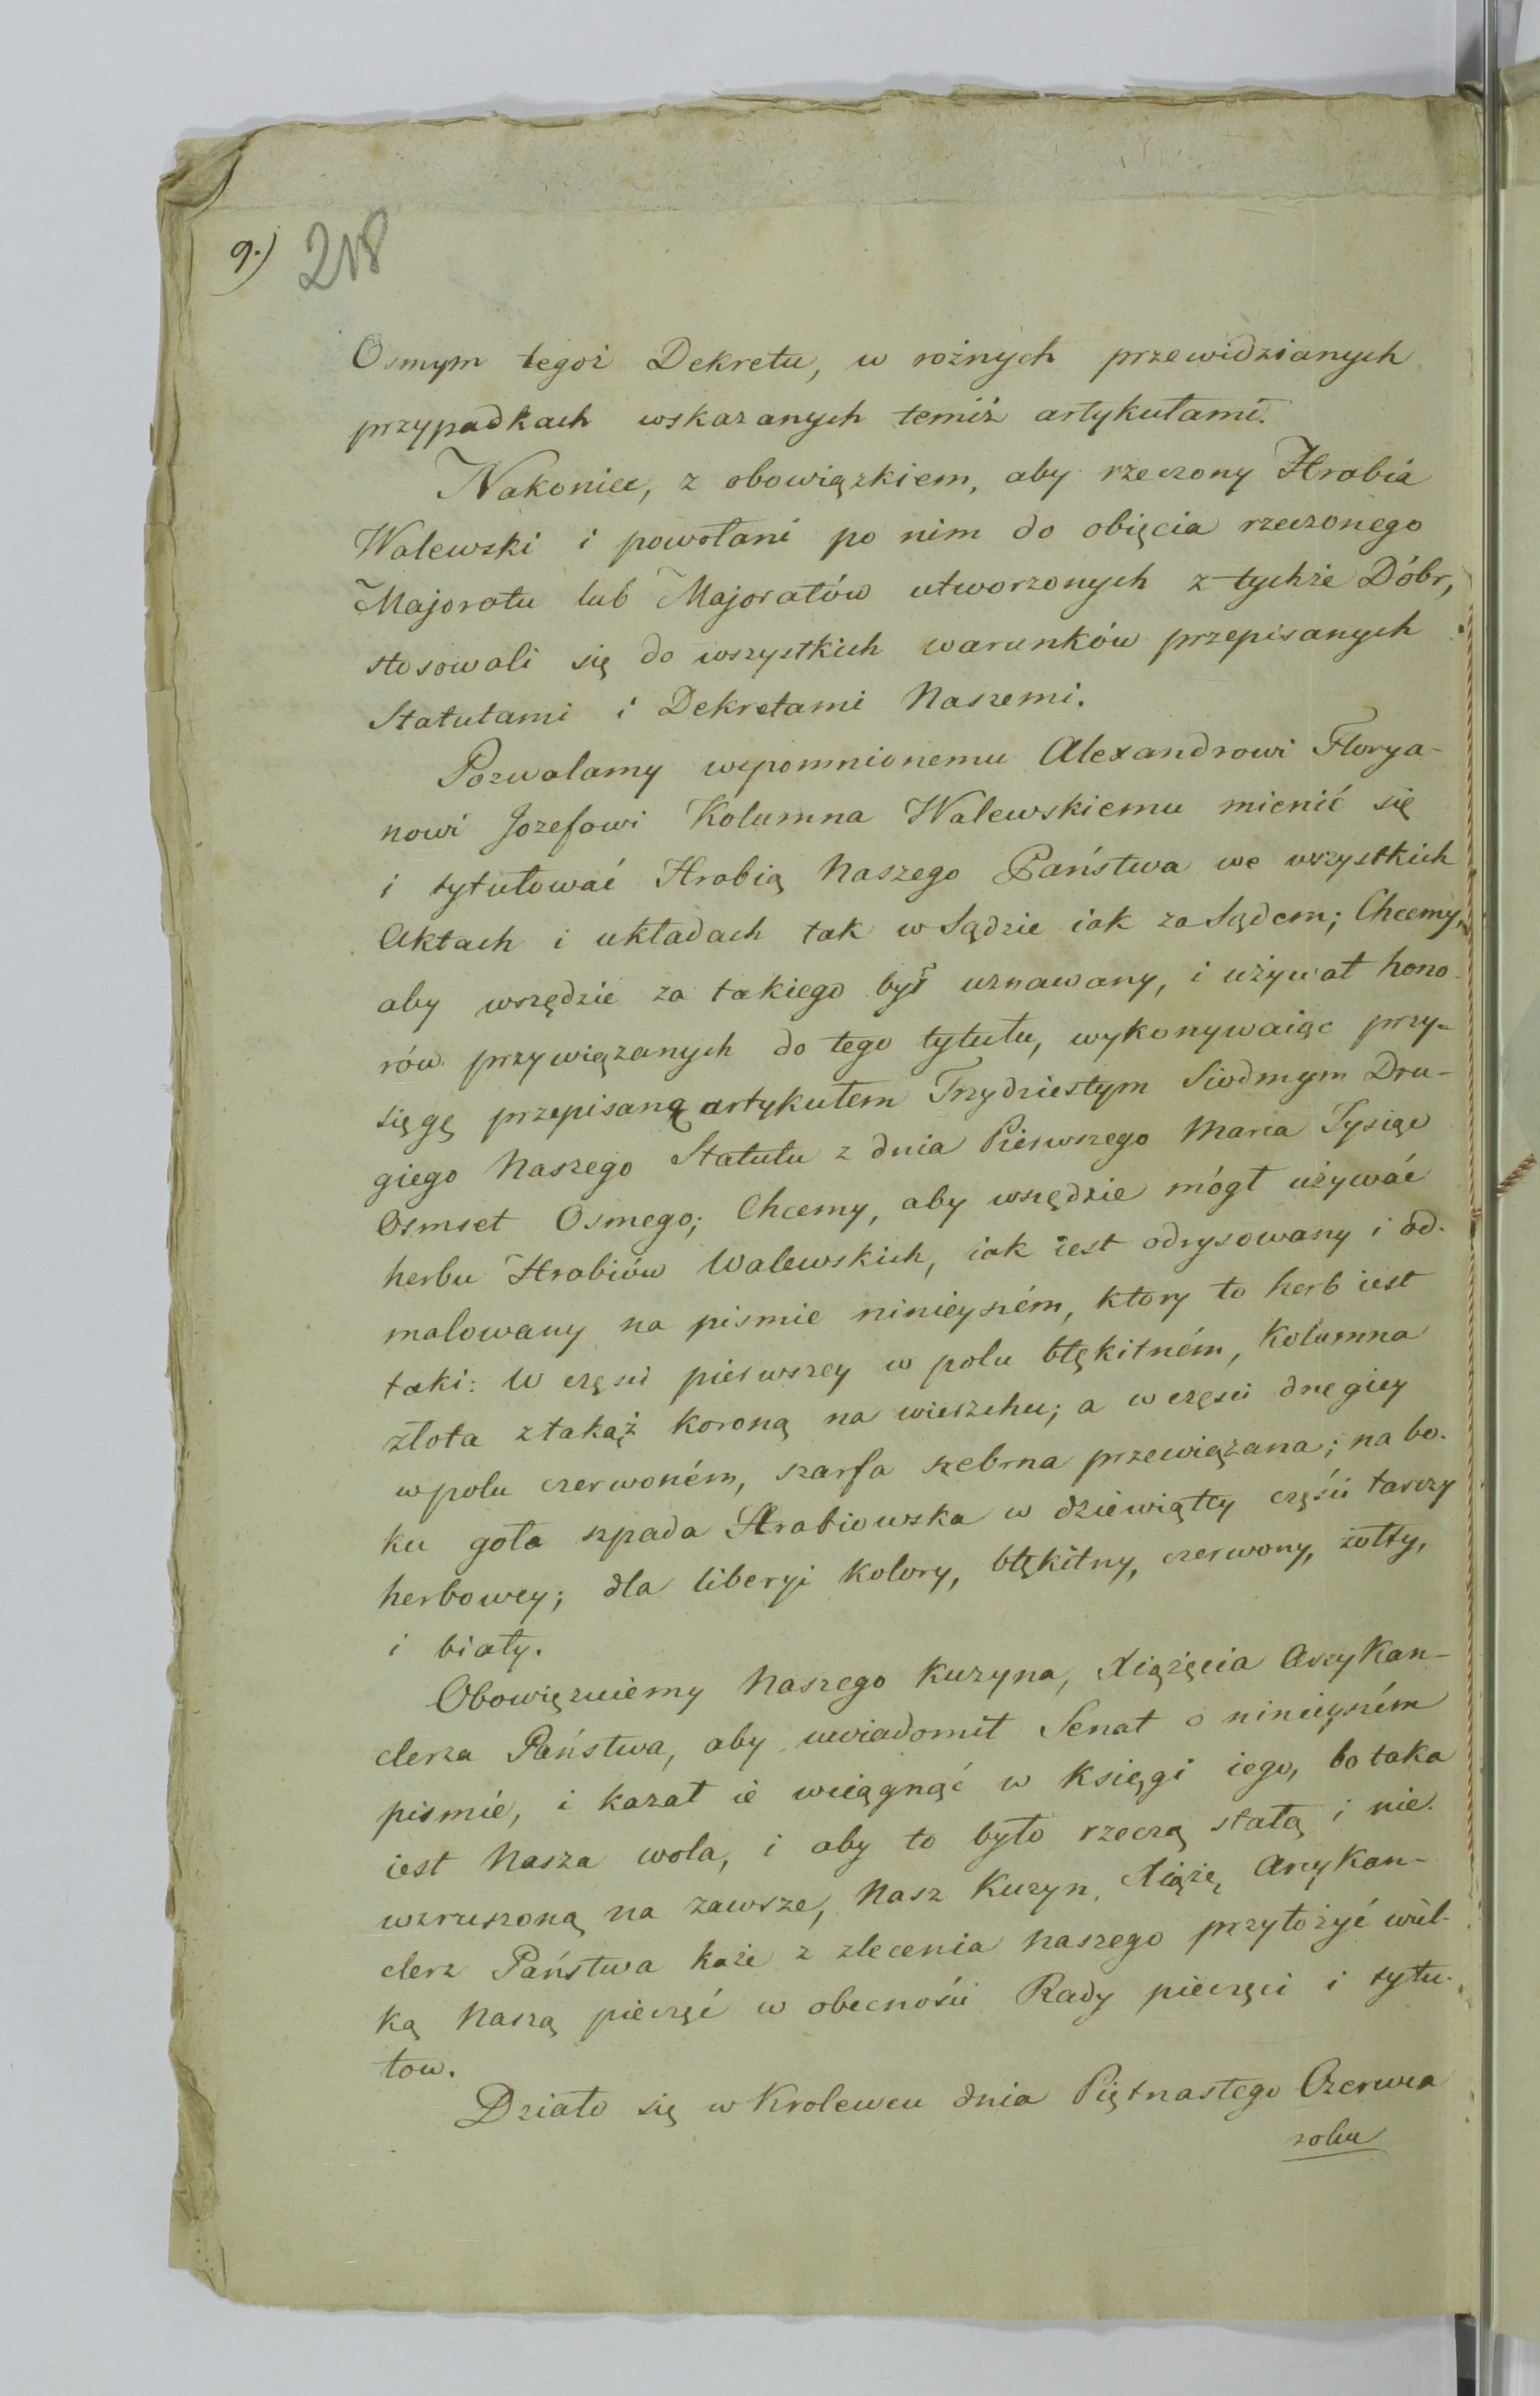 9.) 218
Osmym tegoż Dekretu, w rożnych przewidzianych
przypadkach wskazanych temiż artykułami.
Nakoniec, z obowiązkiem, aby rzeczony Hrabia
Walewski i powołani po nim do obięcia rzeczonego
Majoratu lub Majoratów utworzonych z tychże Dóbr,
stosowali się do wszystkich warunków przepisanych
Statutami i Dekretami Naszemi.
Pozwalamy wspomnionemu Alexandrowi Florya-
nowi Jozefowi Kolumna Walewskiemu mienić się
i tytułować Hrabią Naszego Państwa we wszystkich
Aktach i układach tak w Sądzie iak za Sądem; Chcemy,
aby wszędzie za takiego był uznawany, i używał hono-
rów przywiązanych do tego tytułu, wykonywaiąc przy-
sięgę przepisaną artykułem Trzydziestym Siodmym Dru-
giego Naszego Statutu z dnia Pierwszego Marca Tysiąc
Osmset Osmego; Chcemy, aby wszędzie mógł używać
herbu Hrabiów Walewskich, iak iest odrysowany i od-
malowany na pismie ninieyszém, ktory to herb iest
taki: W częsci pierwszey w polu błękitném, Kolumna
złota z takąż koroną na wierzchu; a w częsci drugiey
w polu czerwoném, szarfa srebrna przewiązana; na bo-
ku goła szpada Hrabiowska w dziewiątey części tarczy
herbowey; dla liberyi kolory, błękitny, czerwony, żołty,
i biały.
Obowięzuiemy Naszego Kuzyna, Xiążęcia Arcykan-
clerza Państwa, aby uwiadomił Senat o ninieyszém
pismie, i kazał ie wciągnąć w księgi iego, bo taka
iest Nasza wola, i aby to było rzeczą stałą i nie-
wzruszoną na zawsze, Nasz Kuzyn, Xiążę Arcykan-
clerz Państwa każe z zlecenia Naszego przyłożyć wiel-
ką Naszą pieczęć w obecności Rady pieczęci i tytu-
łow.
Działo się w Krolewcu dnia Piętnastego Czerwca
roku